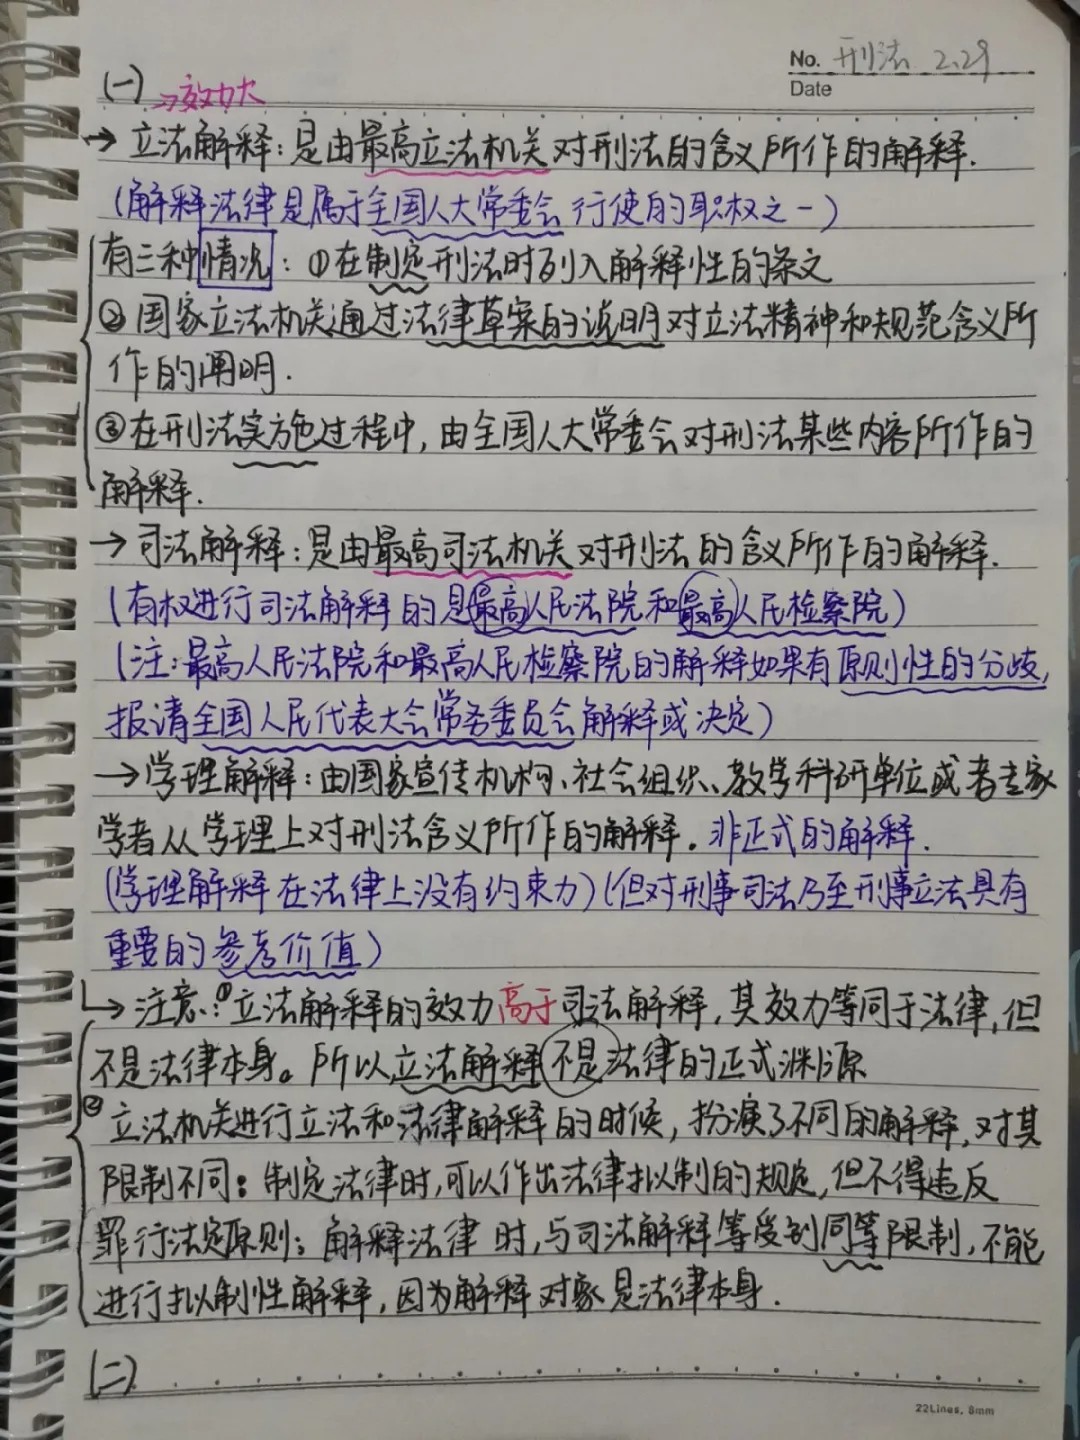 No. 刑法 2.29
Date
(一) →效力大
→ 立法解释：是由最高立法机关对刑法的含义所作的解释.
(解释法律是属于全国人大常委会行使的职权之一)
有三种情况：①在制定刑法时列入解释性的条文
②国家立法机关通过法律草案的说明对立法精神和规范含义所
作的阐明.
③在刑法实施过程中,由全国人大常委会对刑法某些内容所作的
解释.
→司法解释：是由最高司法机关对刑法的含义所作的解释.
(有权进行司法解释的是最高人民法院和最高人民检察院)
(注：最高人民法院和最高人民检察院的解释如果有原则性的分歧,
报请全国人民代表大会常务委员会解释或决定)
→学理解释：由国家宣传机构、社会组织、教学科研单位或者专家
学者从学理上对刑法含义所作的解释。非正式的解释.
(学理解释在法律上没有约束力)(但对刑事司法乃至刑事立法具有
重要的参考价值)
→注意：①立法解释的效力高于司法解释,其效力等同于法律,但
不是法律本身。所以立法解释不是法律的正式渊源
②立法机关进行立法和法律解释的时候,扮演了不同的解释,对其
限制不同：制定法律时,可以作出法律拟制的规定,但不得违反
罪行法定原则；解释法律时,与司法解释等受到同等限制,不能
进行拟制性解释,因为解释对象是法律本身.
(二)
22Lines, 8mm